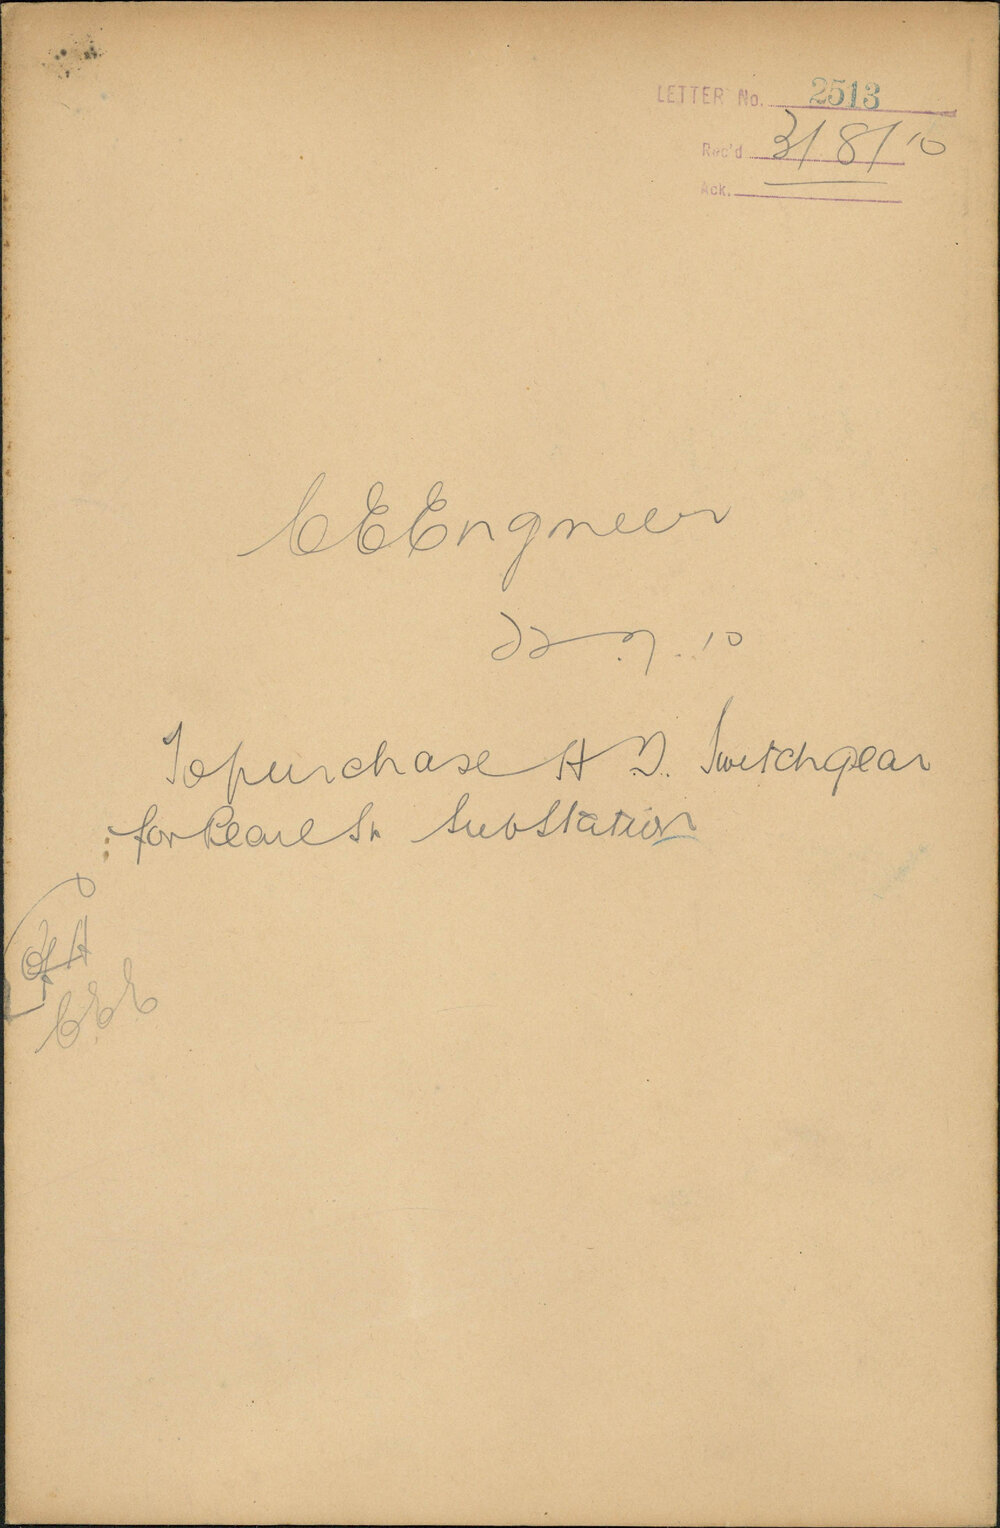 LETTER No. 2513
Rec'd 3/8/10
Ack.
C E Engineer
22.7.10
To purchase H T. Switchgear
for Pearl St. Sub Station
C E E